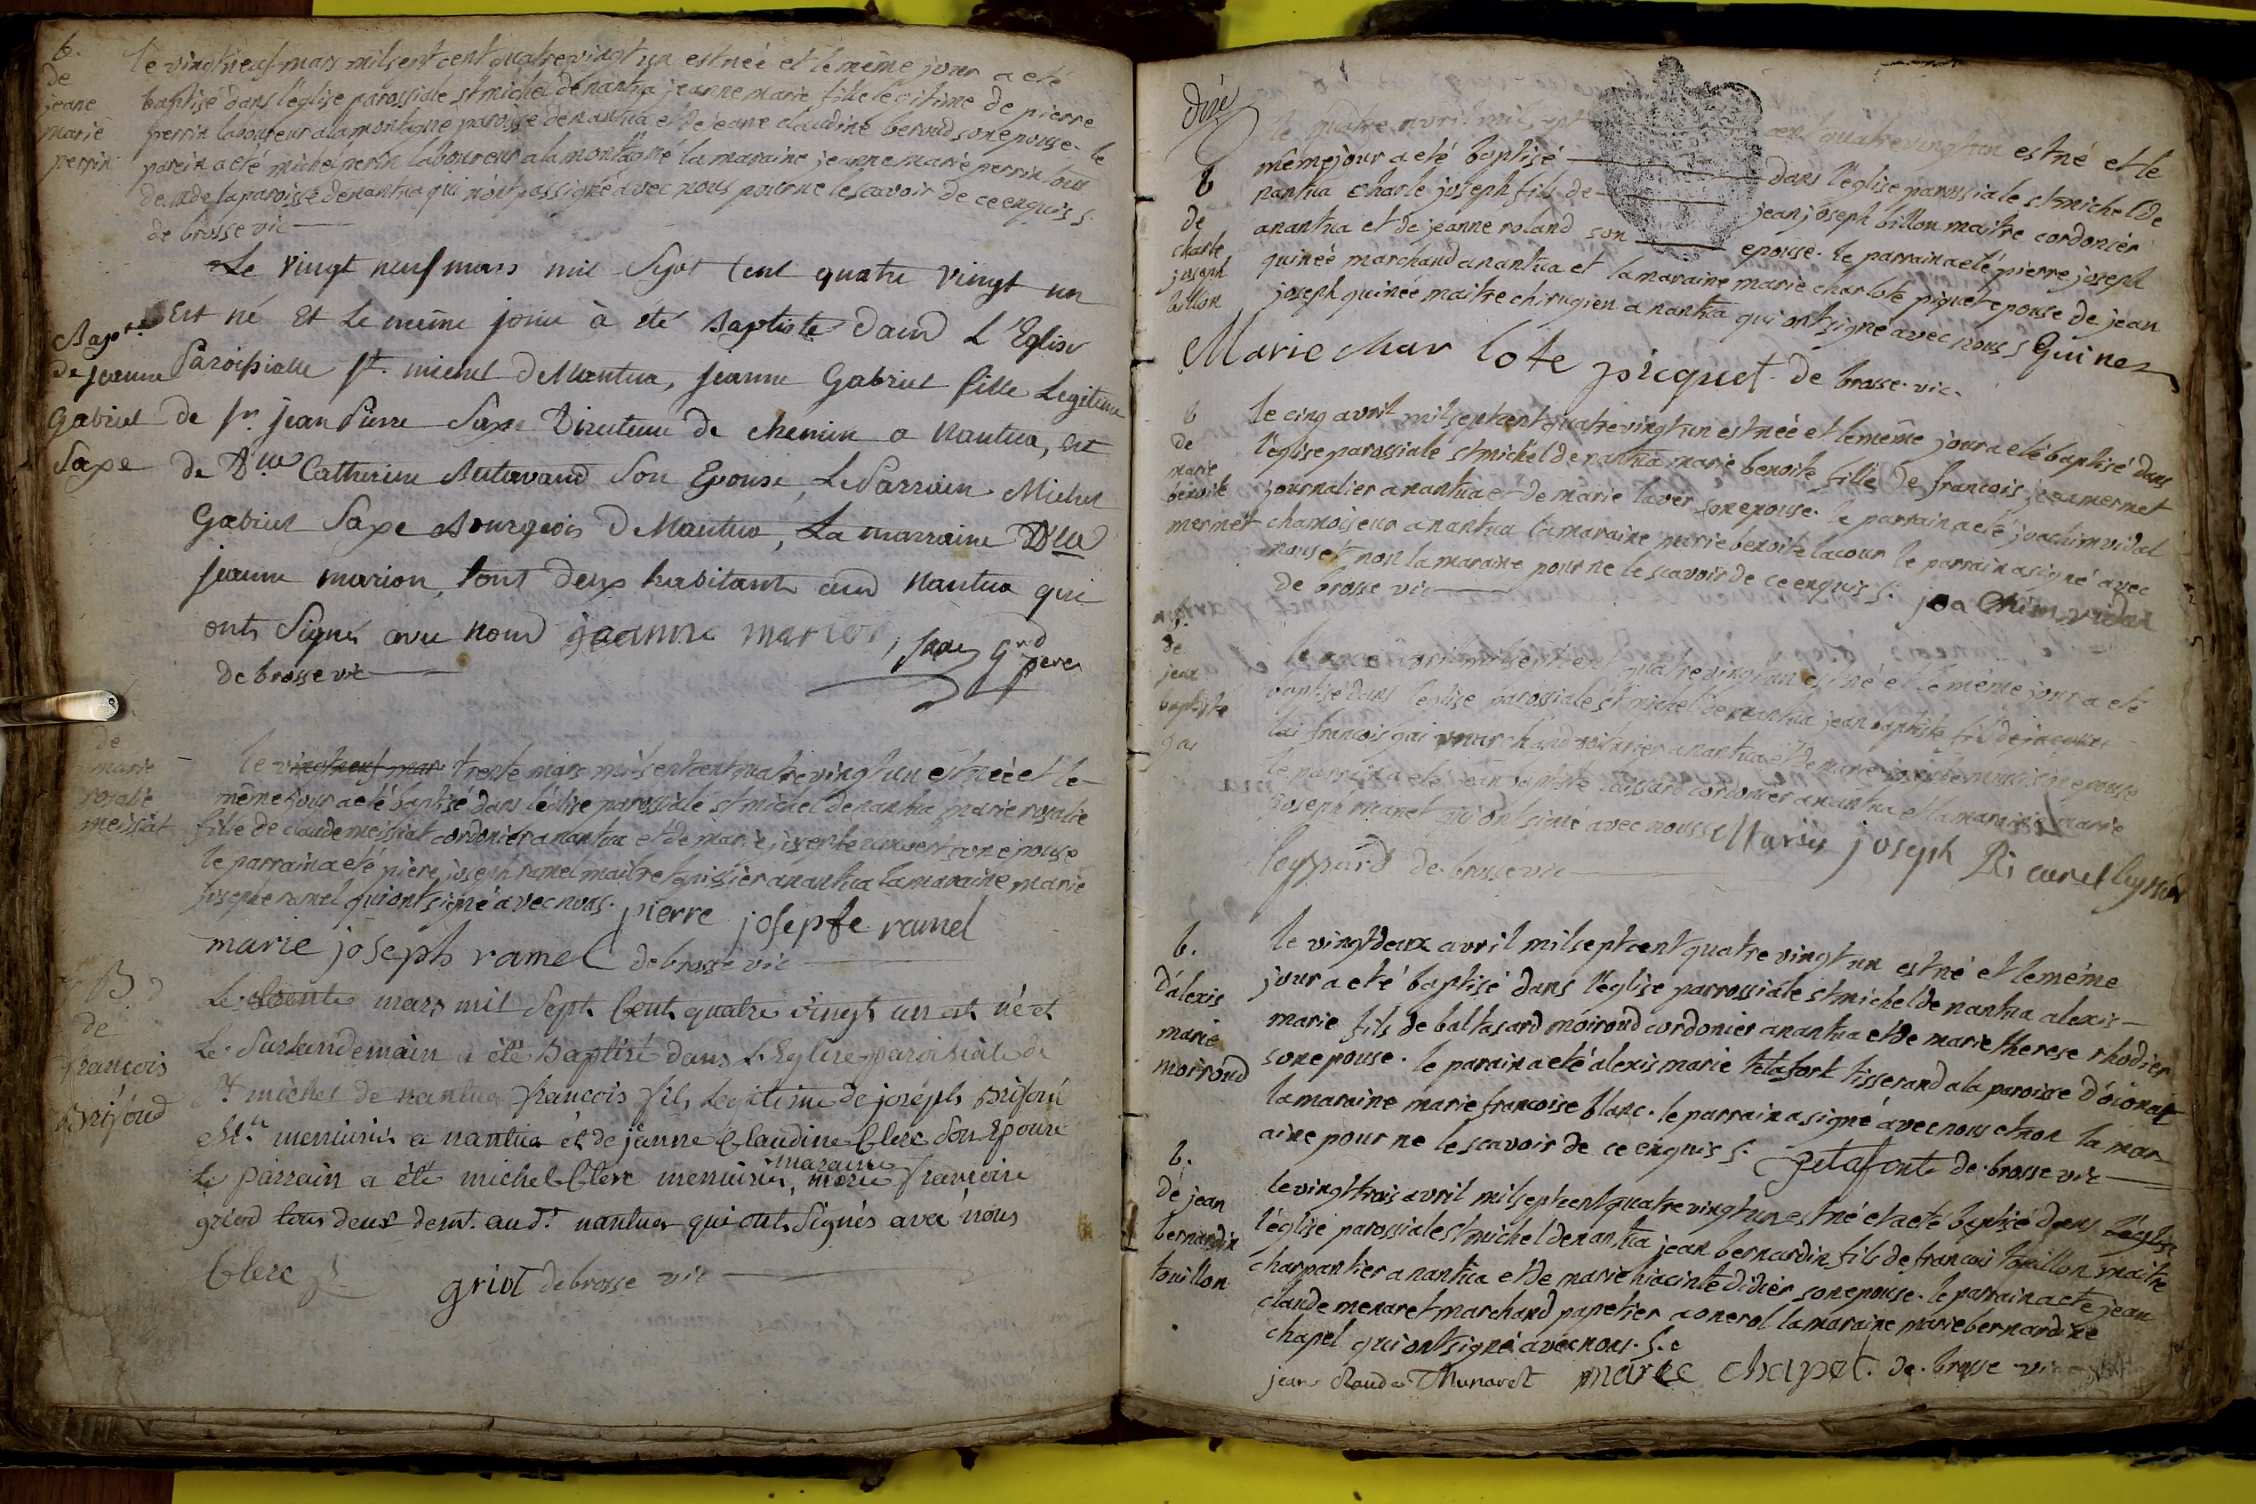 b.
de
jeane
marie
perrin
le vingt neuf mars mil sept cent quatre vingt un est née et le même jour a eté
baptisé dans l'église parossiale st michel de nantua jeanne marie fille légitime de pierre
perrin laboureur a la montagne paroisse de nantua et de jeane claudine beroud son epouse. le
parein a eté michel perin laboureur a la montagne la maraine jeanne marie perrin tous
deux de la paroisse de nantua qui n'ont pas signé avec nous pour ne le scavoir de ce enquis s.
de brosse vic
Bapt.
de jeanne
Gabriel
Saxe
Le vingt neuf mars mil Sept Cent quatre vingt un
Est né Et Le meême jour à été Baptisté dans L'Eglise
Paroissialle St. michel de Nantua, jeanne Gabriel fille Legitime
de Sr. jean Pierre Saxe Directeur de chemin a Nantua, Et
de Dlle Catherine Son Epouse, Le Parrain Michel
Gabriel Saxe Bourgeois de Nantua, La marraine Dlle
jeanne marion, tous deux habitants aud Nantua qui
onts Signés avec nous jeanne marion, Saxe grd
pere
de brosse vic
de
marie
rosalie
meissiat
le vingt neuf mar trente mars mil sept cent quatre vingt un est née et le
même jour a eté baptisé dans l'église parossiale st michel de nantua marie rosalie
fille de claude meissiat cordonier a nantua et de marie josephe son epouse
le parrain a eté piere joseph ramel maitre tapissier a nantua la maraine marie
josephe ramel qui ont signé avec nous. pierre josepfe ramel
marie joseph ramel de brosse vic
B
de
francois
Brijoud
Le trente mars mil Sept Cent quatre vingt un est né et
Le Surlendemain a été Baptisé dans L'Eglise paroissiale de
St michel de nantua francois fils Legitime de joseph Brijoud
Me. menuisier a nantua et de jeanne Claudine Clerc Son Epouse
Le parrain a été michel Clerc menuisier, maraine marie francoise
griod tous deux demt. aud.t nantua qui onts Signés avec nous
Clerc griot de brosse vic
b
de
charle
joseph
billon
le quatre avril mil sept cent quatre vingt un est né et le
même jour a eté baptisé dans l'église parossiale st michel de
nantua charle joseph fils de jean joseph billon maitre cordonier
a nantua et de jeanne roland son epouse. le parrain a eté pierre joseph
quinée marchand a nantua et la maraine marie charlote piquet epouse de jean
joseph quinée maitre chirugien a nantua qui ont signé avec nous s Guinet
Marie char lote picquet. de brosse. vic.
b
de
marie
benoite
mermet
le cinq avril mil sept cent quatre vingt un est née et le même jour a eté baptisé dans
l'église parossiale st michel de nantua marie benoite fille de francois mermet
journalier a nantua et de marie laver son epouse. le parrain a eté joachim vidal
chamoiseur a nantua la maraine marie benoite lacour le parrain a signé avec
nous et non la maraine pour ne le scavoir de ce enquis s. joa Chim vidal
de brosse vic
b.
de
jean
baptiste
gai
le avril mil sept cent quatre vingt un est né et le même jour a eté
baptisé dans l'église parossiale st michel de nantua jean baptiste fils de
francois gai marchand a nantua et de marie son epouse
le parrain a eté jean baptiste cordonier a nantua et la maraine marie
joseph qui ont signé avec nous Marie joseph
de brosse vic
b.
d'alexis
marie
moiroud
le vingt deux avril mil sept cent quatre vingt un est né et le même
jour a eté baptisé dans l'église parrossiale st michel de nantua alexis
marie fils de baltasard moiroud cordonier a nantua et de marie therese rhodier
son epouse. le parain a eté alexis marie tisserand a la paroisse d'oionax
la maraine marie francoise blanc. le parrain a signé avec nous et non la mar-
aine pour ne le scavoir de ce enquis s. de brosse vic
b.
de jean
bernardin
touillon
le vingt trois avril mil sept cent quatre vingt un est né et a eté baptisé dans l'église
l'église parossiale st michel de nantua jean bernardin fils de francois touillon maitre
charpantier a nantua et de marie hiacinte didier son epouse. le parrain a eté jean
claude menaret marchand papetier a la maraine marie bernardine
chapel qui ont signé avec nous. s.e
jean Claude Munaret marie chapel. de. brosse vic